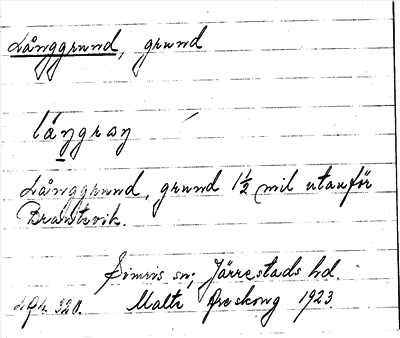 Långgrund, grund
Långgrund, grund 1½ mil utanför
Brantevik.
Simris sn, Järrestads hd.
320. Malte Areskoug 1923